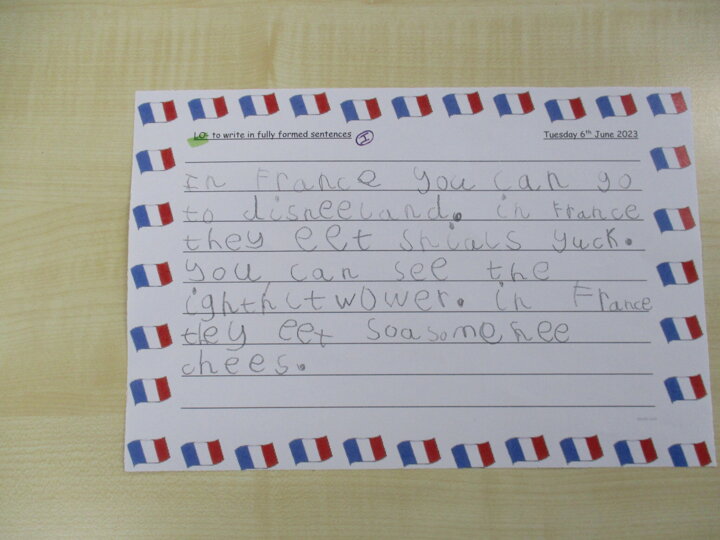 LO: to write in fully formed sentences I Tuesday 6th June 2023
In France you can go
to disneeland. in France
they eet snials yuck.
you can see the
ighthctwower. in France
they eet soasomehee
chees.